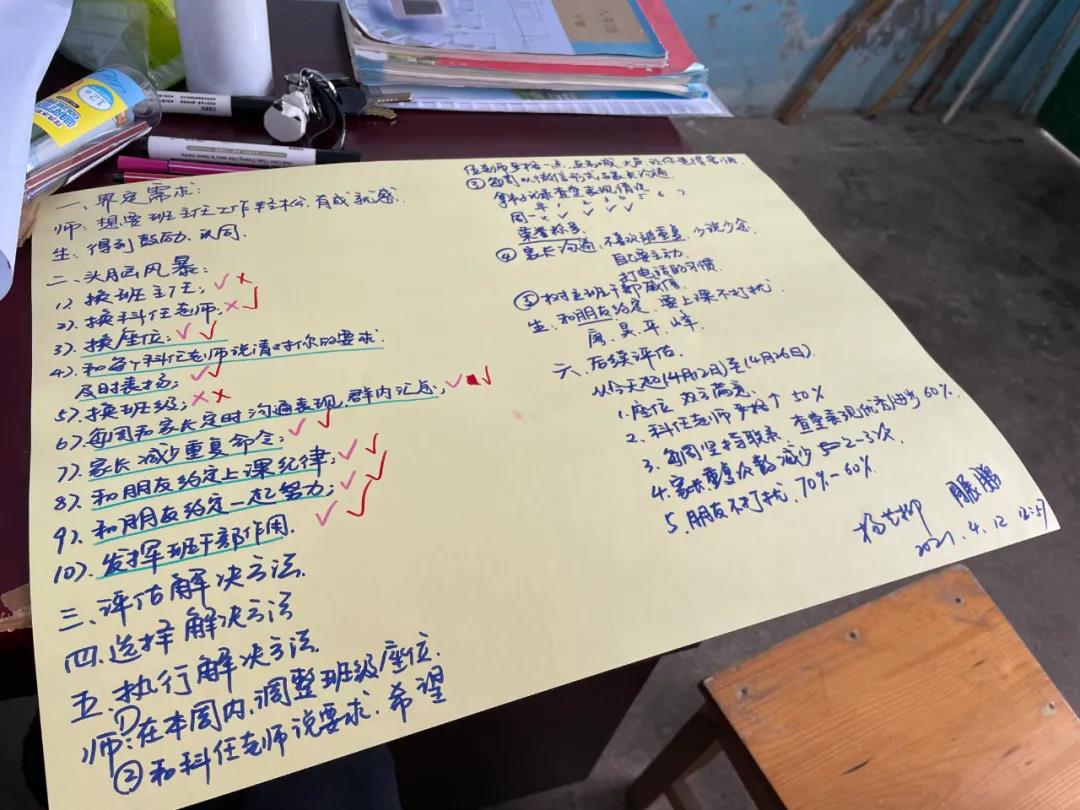 一、界定需求:
师: 想要班主任工作轻松、有成就感
生: 得到鼓励、认同.
二、头脑风暴:
1). 换班主任; ✓ ×
2). 换科任老师; × ✓
3). 换座位; ✓ ✓
4). 和每个科任老师说清对你的要求.
及时表扬; ✓ ✓
5). 换班级; × ×
6). 每周和家长定时沟通表现, 群内汇总; ✓ ✓
7). 家长减少重复命令; ✓ ✓
8). 和朋友约定上课纪律; ✓ ✓
9). 和朋友约定一起努力; ✓ ✓
10). 发挥班干部作用. ✓ ✓
三、评估解决方法.
四、选择解决方法
五、执行解决方法.
师: ①在本周内、调整班级座位.
②和科任老师说要求. 希望
任老师严格一点,
③每周以微信形式与家长沟通.
拿科记录查堂表现情况
1 2 3 4 5 6 7
周一 × ✓ ✓ ✓ ✓
荣誉称号.
④家长沟通, 不喜欢被重复, 少说少念
自己要主动.
打电话的习惯.
⑤树立班干部威信.
生: 和朋友约定, 要上课不打扰.
六、后续评估.
从今天起(4月12日)至(4月26日).
1. 座位 双方满意.
2. 科任老师严格↑ 50%
3. 每周坚持联系. 查堂表现优秀进步60%.
4. 家长重复次数减少 5=2-3次.
5. 朋友不打扰, 70%-60%.
2021. 4. 12 12:57